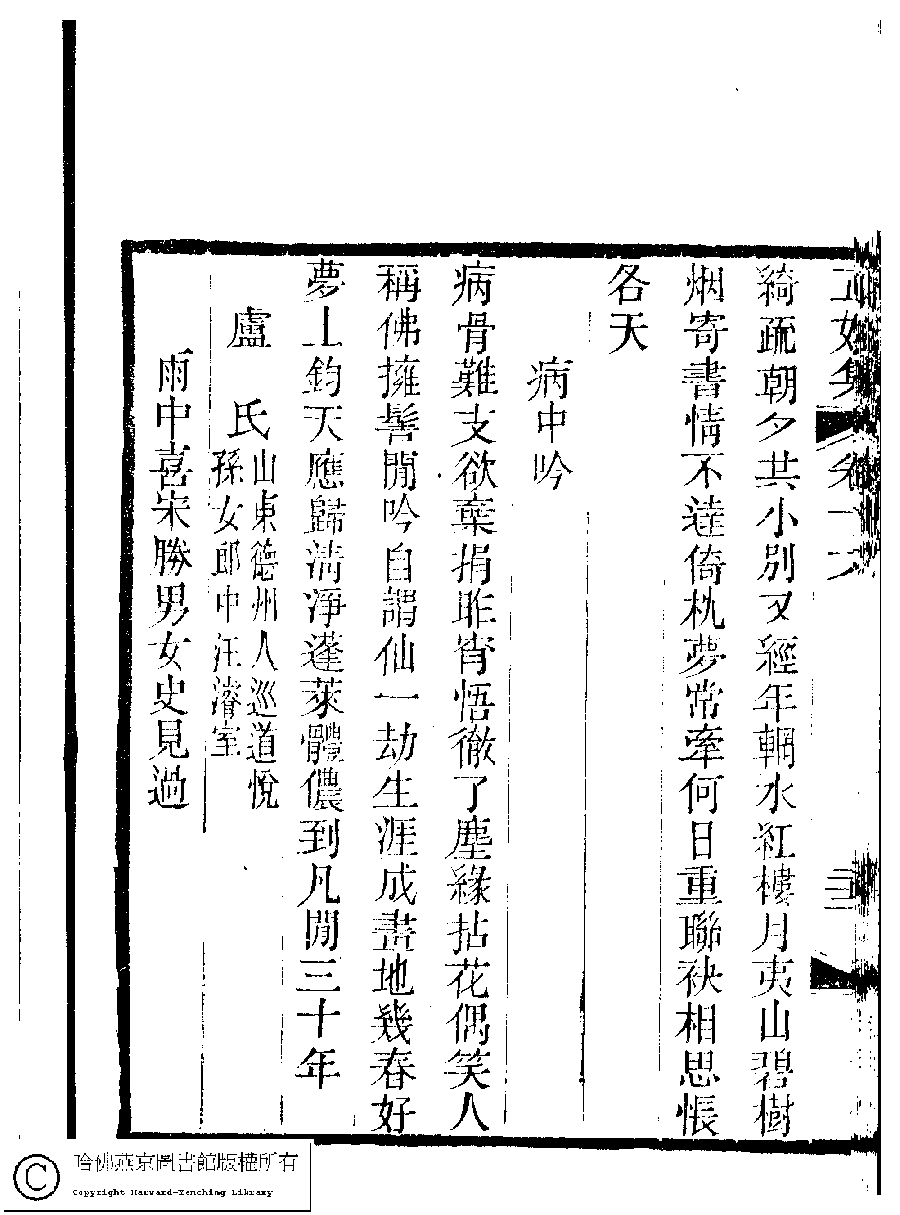 集 卷 三
綺疏朝夕共小別又經年輞水紅樓月夷山碧樹
烟寄書情不達倚枕夢常牽何日重聯袂相思悵
各天
病中吟
病骨難支欲棄捐昨宵悟徹了塵緣拈花偶笑人
稱佛擁髻閒吟自謂仙一劫生涯成畫地幾春好
夢上鈞天應歸淸凈蓬萊體儂到凡閒三十年
盧氏
山東德州人巡道悅
孫女郎中汪濬室
雨中喜宋勝男女史見過
哈佛燕京圖書館版權所有
Copyright Harvard-Yenching Library